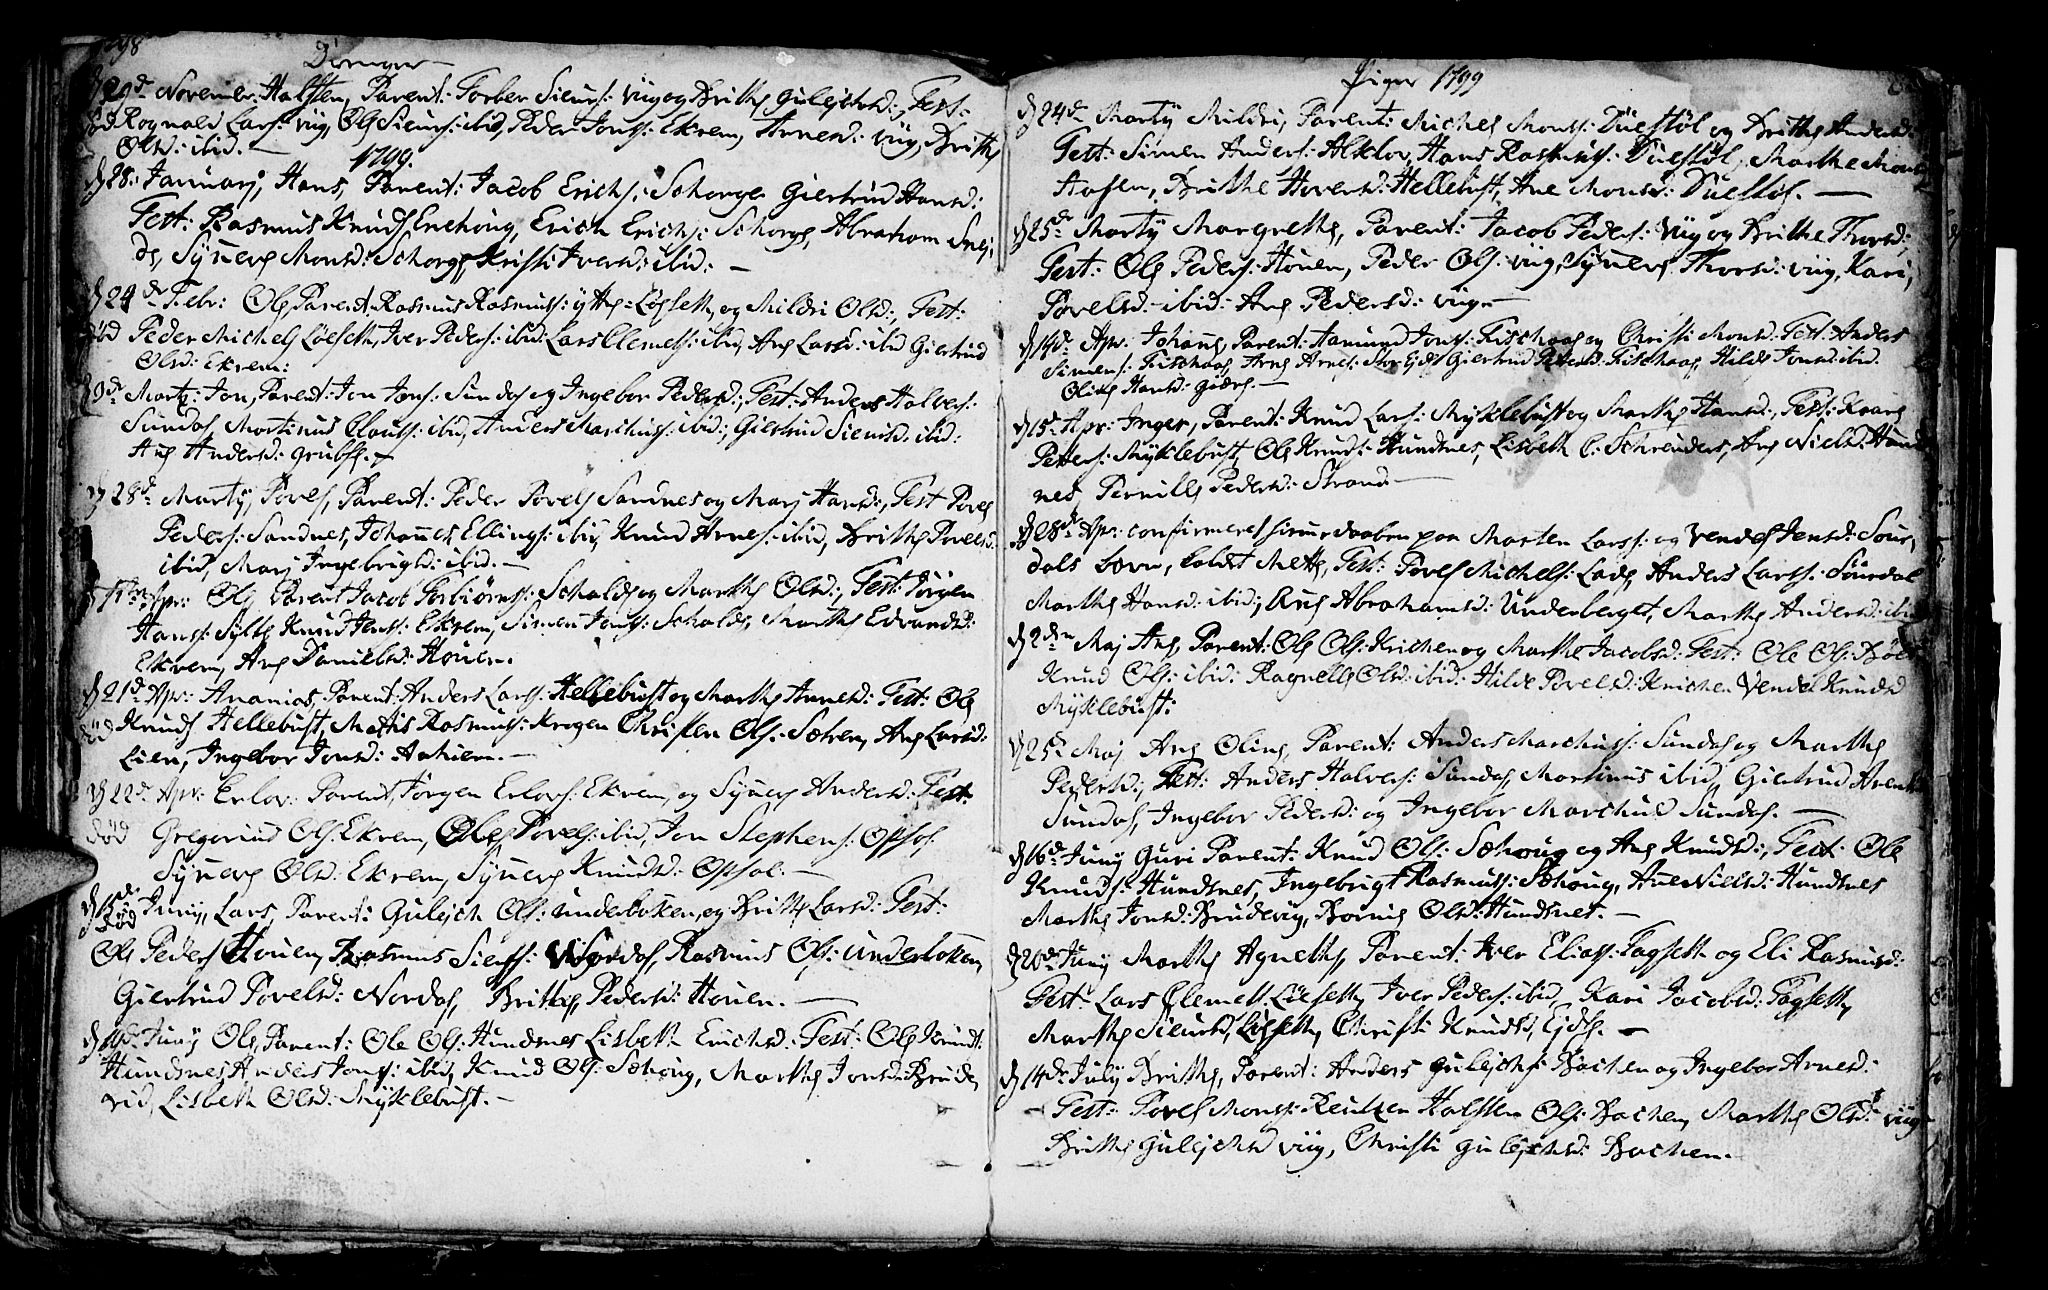 1798
Drenger
d 29de November: Halsten, Parent: Torber Siurs: Viig og Brithe Gulejchsd:, Test:
død Rognald Lars: Viig, Ole Siurs: ibid, Peder Jons: Ekrem, Arnesd: Viig, Brithe
Olsd: ibid. —
1799.
d 28: Januarj, Hans, Parent: Jacob Erichs: Schorge Giertrud Hansd:
Test: Rasmus Knuds Enehoug, Erich Erichs: Schorge, Abraham
Synneve Monsd: Schorge, Kristi Iversd: ibid: —
d 24de Febr: Ole, Parent: Rasmus Rasmuss: ytre Løeseth og Mildri Olsd:, Test:
død Peder Michels Løeseth, Iver Peders: ibid: Lars Clemets: ibid, Ane Larsd: ibid Giertrud
Olsd: Ekrem:
d 9de Martj: Jon, Parent: Jon Jons: Sundal og Ingebor Pedersd:, Test: Anders Halvers:
Sundal, Mortinus Clauss: ibid, Anders Marchuss: ibid, Giertrud Siursd: ibid:
Ane Andersd: Grubse. —
d 28de Martij, Povel, Parent: Peder Povels Sandnes og Marj Hansd:, Test Povel
Peders: Sandnes, Johannes Ellings: ibid, Knud Arnes: ibid, Brithe Povelsd:
ibid, Marj Ingebrigtsd: ibid. —
d Apr: Ole Parent Jacob Torbiørns: Schalde og Marthe Olsd:, Test: Jørgen
Hanss: Sylte Knud Jens: Ekrem, Simen Jons: Schalde, Marthe Edvardsd:
Ekrem, Ane Danielsd: Houen.
d 21de Apr: Ananias, Parent: Anders Lars: Hellebust og Marthe Hansd: Test: Ole
død Knuds Hellebust, Mathis Rasmuss: Krogen Christen Ols: Sætren, Ane Larsd:
Lien, Ingebor Jonsd: Aahiem. —
d 22de Apr: Erlov: Parent: Jørgen Erlovs: Ekrem, og Synneve Andersd: Test:
død Gregorius Ols: Ekrem, Ole Povels: ibid, Jon Stephens: Opsal
Synneve Olsd: Ekrem, Synneve Knudsd: Opsal. —
d 15de Junij, Lars, Parent: Gulejch Ols: Underboken, og Brithe Larsd: Test:
død
Ole Peders Houen, Rasmus Siurs: Nordal, Rasmus Ols: Underboken,
Giertrud Povelsd: Nordal, Brithe Pedersd: Houen. —
d Junij Ole, Parent: Ole Ols: Hundsnes Lisbeth Erichsd: Test: Ole Knuds
Hundsnes Anders Jons: ibid, Knud Ols: Sæhoug, Marthe Jonsd: Brude
vig, Lisbeth Olsd: Myklebust. —
Piger 1799
d 24de Martij Mildri, Parent: Michel Mons: Duestøl og Brithe Andersd:
Test: Simen Anders: Alklov, Hans Rasmuss: Duestøl, Marthe Monsd
Aasen, Brithe Haversd: Hellebust, Ane Monsd: Duestøl. —
d 25de Martij Margrethe, Parent: Jacob Peders: Viig og Brithe Thorsd:
Test: Ole Peders: Houen, Peder Ols: Viig, Synneve Thorsd: Viig, Kari
Povelsd: ibid: Ane Pedersd: Viig —
d 14de Apr: Johanne, Parent: Aamund Jons: Fischaae og Christi Monsd: Test: Anders
Simens: Fischaae, Arne Arnes: Giertrud Fischaae, Hilde Jonsd: ibid
Oline Hansd: Giære. —
d 15de Apr: Inger, Parent: Knud Lars: Myklebust og Marthe Hansd:, Test: Kaare
Petters: Myklebust, Ole Knuds: Hundnes, Lisbeth C: Schrenders, Ane Nielsd: Hunds
nes, Pernille Pedersd: Strand —
d 28de Apr: confirmeret hiemedaaben paa Morten Larss: og Vendel Jensd: Sour,
dals barn, kaldt Mette, Test: Povel Michels: Lade, Anders Larss: Sourdal
Marthe Hansd: ibid; Ane Abrahamsd: Underberget, Marthe Andersd: ibid
d 2den Maj Ane, Parent: Ole Ols: Krichen og Marthe Jacobsd: Test: Ole Ols:
Knud Ols: ibid: Ragnelle Olsd: ibid: Hilde Povelsd: Krichen Vendel Knudsd
Myklebust:
d 25de Maj Ane Oline, Parent: Anders Marchuss: Sundal og Marthe
Pedersd:, Test: Anders Halvers: Sundal, Mortinus ibid, Giertrud
Sundal, Ingebor Pedersd: og Ingebor Marchusd Sundal. —
d 16de Junij Guri Parent: Knud Ols: Sæhoug og Ane Knudsd:, Test: Ole
Knuds: Hundsnes, Ingebrigt Rasmuss: Sæhoug, Ane Nielsd: Hundsnes
Marthe Jonsd: Brudevig, Bornie Olsd: Hundsnes. —
d 20de Junij Marthe Agnethe, Parent: Iver Eliass: Fagseth og Eli Rasmusd:
Test: Lars Clemets: Løeseth, Iver Peders: ibid, Kari Jacobsd: Fagseth,
Marthe Siursd, Løeseth, Christi Knudsd, Ejde. —
d 14de Julij Brithe, Parent: Anders Gulejchs: Bachen og Ingebor Arnesd:
— Test: Povel Mons: Halsten Ols: Bachen, Marthe Olsd: Viig
Brithe Gulejchsd Viig, Christi Gulejchsd: Bachen. —